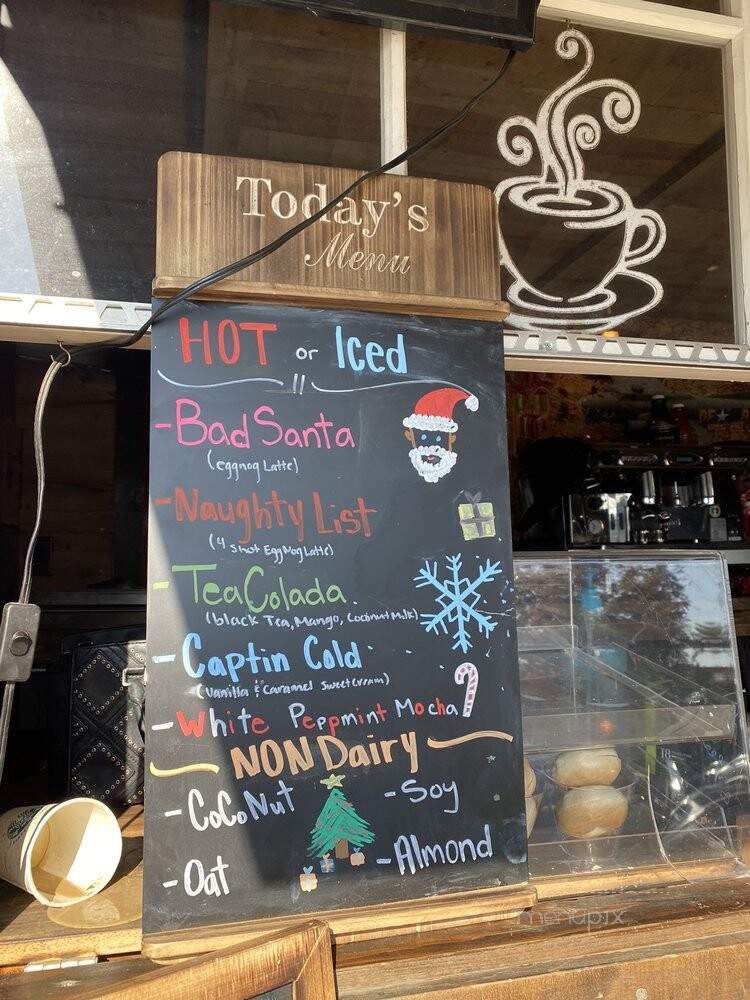 Today's
Menu
HOT or Iced
-Bad Santa
(eggnog Latte)
-Naughty List
(4 shot EggNog Latte)
-Tea Colada
(black Tea, Mango, Coconut Milk)
-Captin Cold
(Vanilla & Caramel Sweet Cream)
-White Peppmint Mocha
NON Dairy
-CoCoNut
-Soy
-Oat
-Almond
menupix